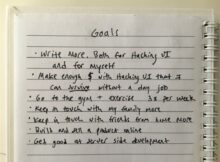 Goals
• Write More. Both for Hacking UI
and for myself
• Make enough $ with Hacking UI that I
can survive without a day job
• Go to the gym + exercise 3x per week
• Keep in touch with my family more
• Keep in touch with friends from home more
• Build and sell a product online
• Get good at server side development